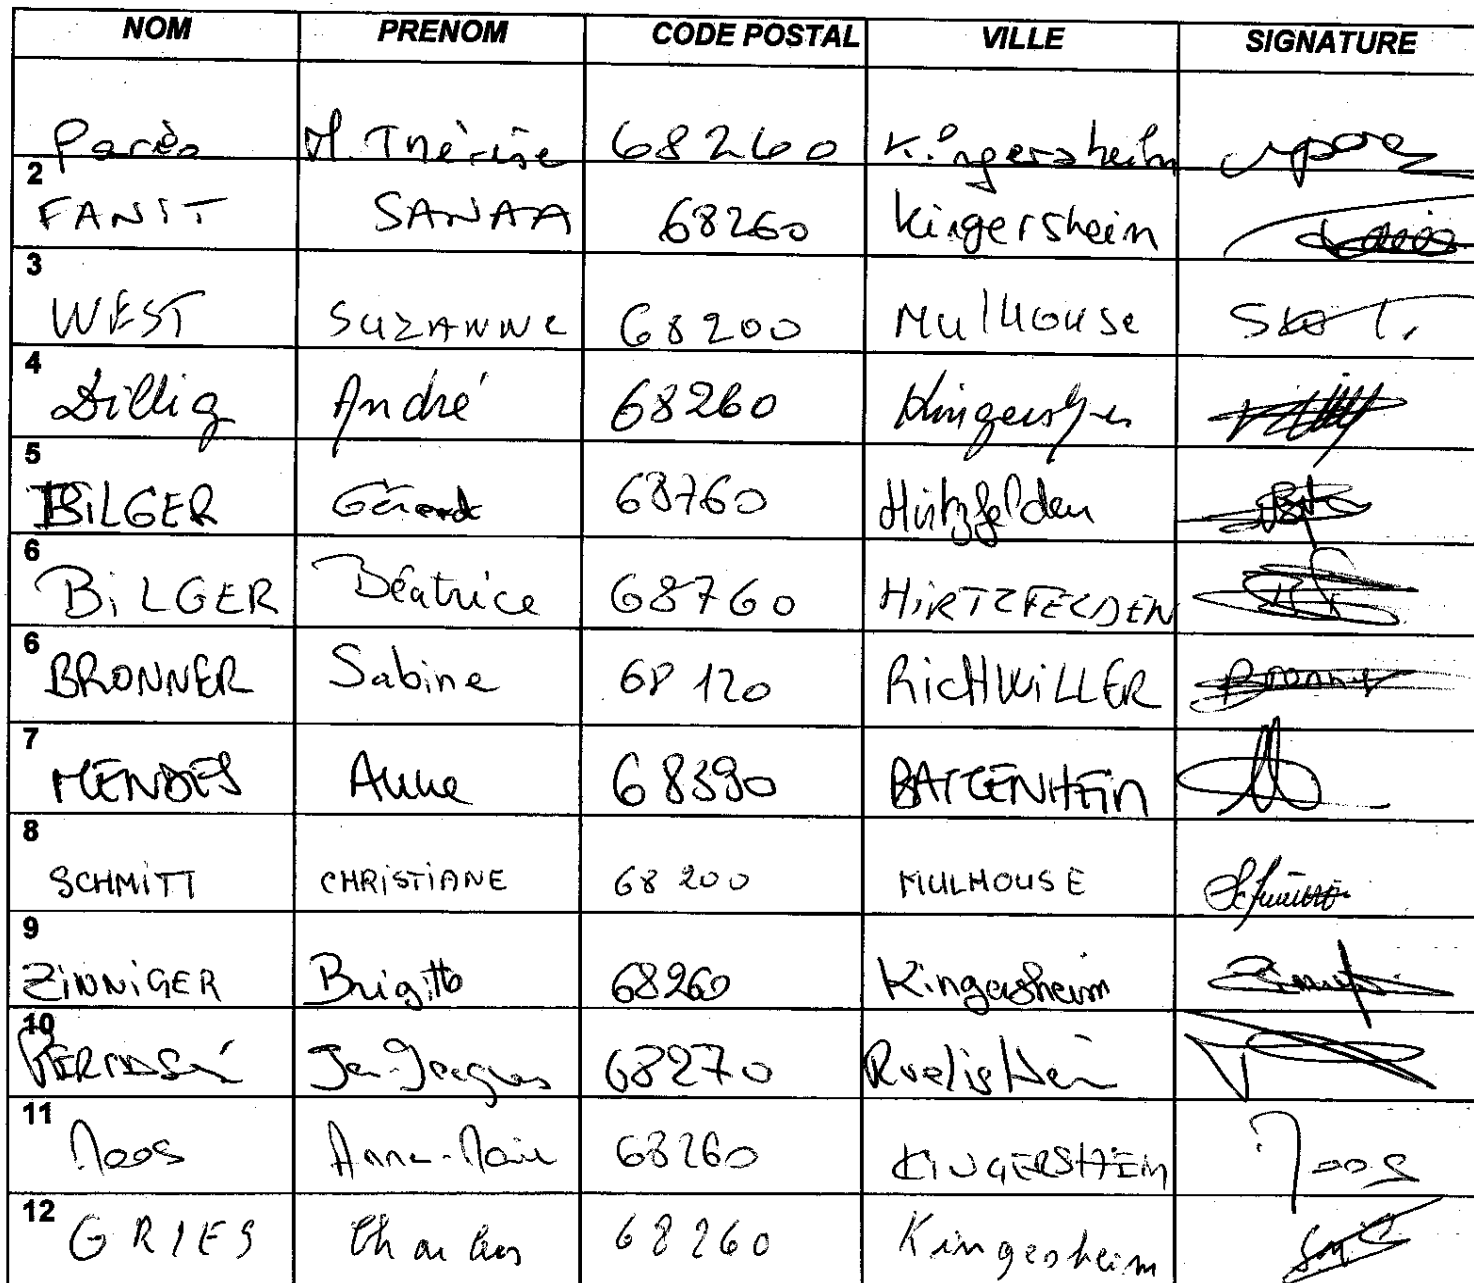 NOM PRENOM CODE POSTAL VILLE SIGNATURE
Parès M. Thérèse 68260 Kingersheim
2
FANIT SANAA 68260 Kingersheim
3
WEST SUZANNE 68200 Mulhouse
4
Dillig André 68260
5
BILGER Gérard 68760 Hirtzfelden
6
BiLGER Béatrice 68760 HiRTZFELDEN
6
BRONNER Sabine 68120 RicHWiLLER Bronner
7
MENDES Anne 68390 BATTENHEiM
8
SCHMiTT CHRiSTiANE 68 200 MULHOUSE Schmitt
9
ZiNNiGER Brigitte 68260 Kingersheim
10
68270
11
Moos Anne-Marie 68260 KINGERSHEIM Moos
12
GRIES Charles 68260 Kingersheim